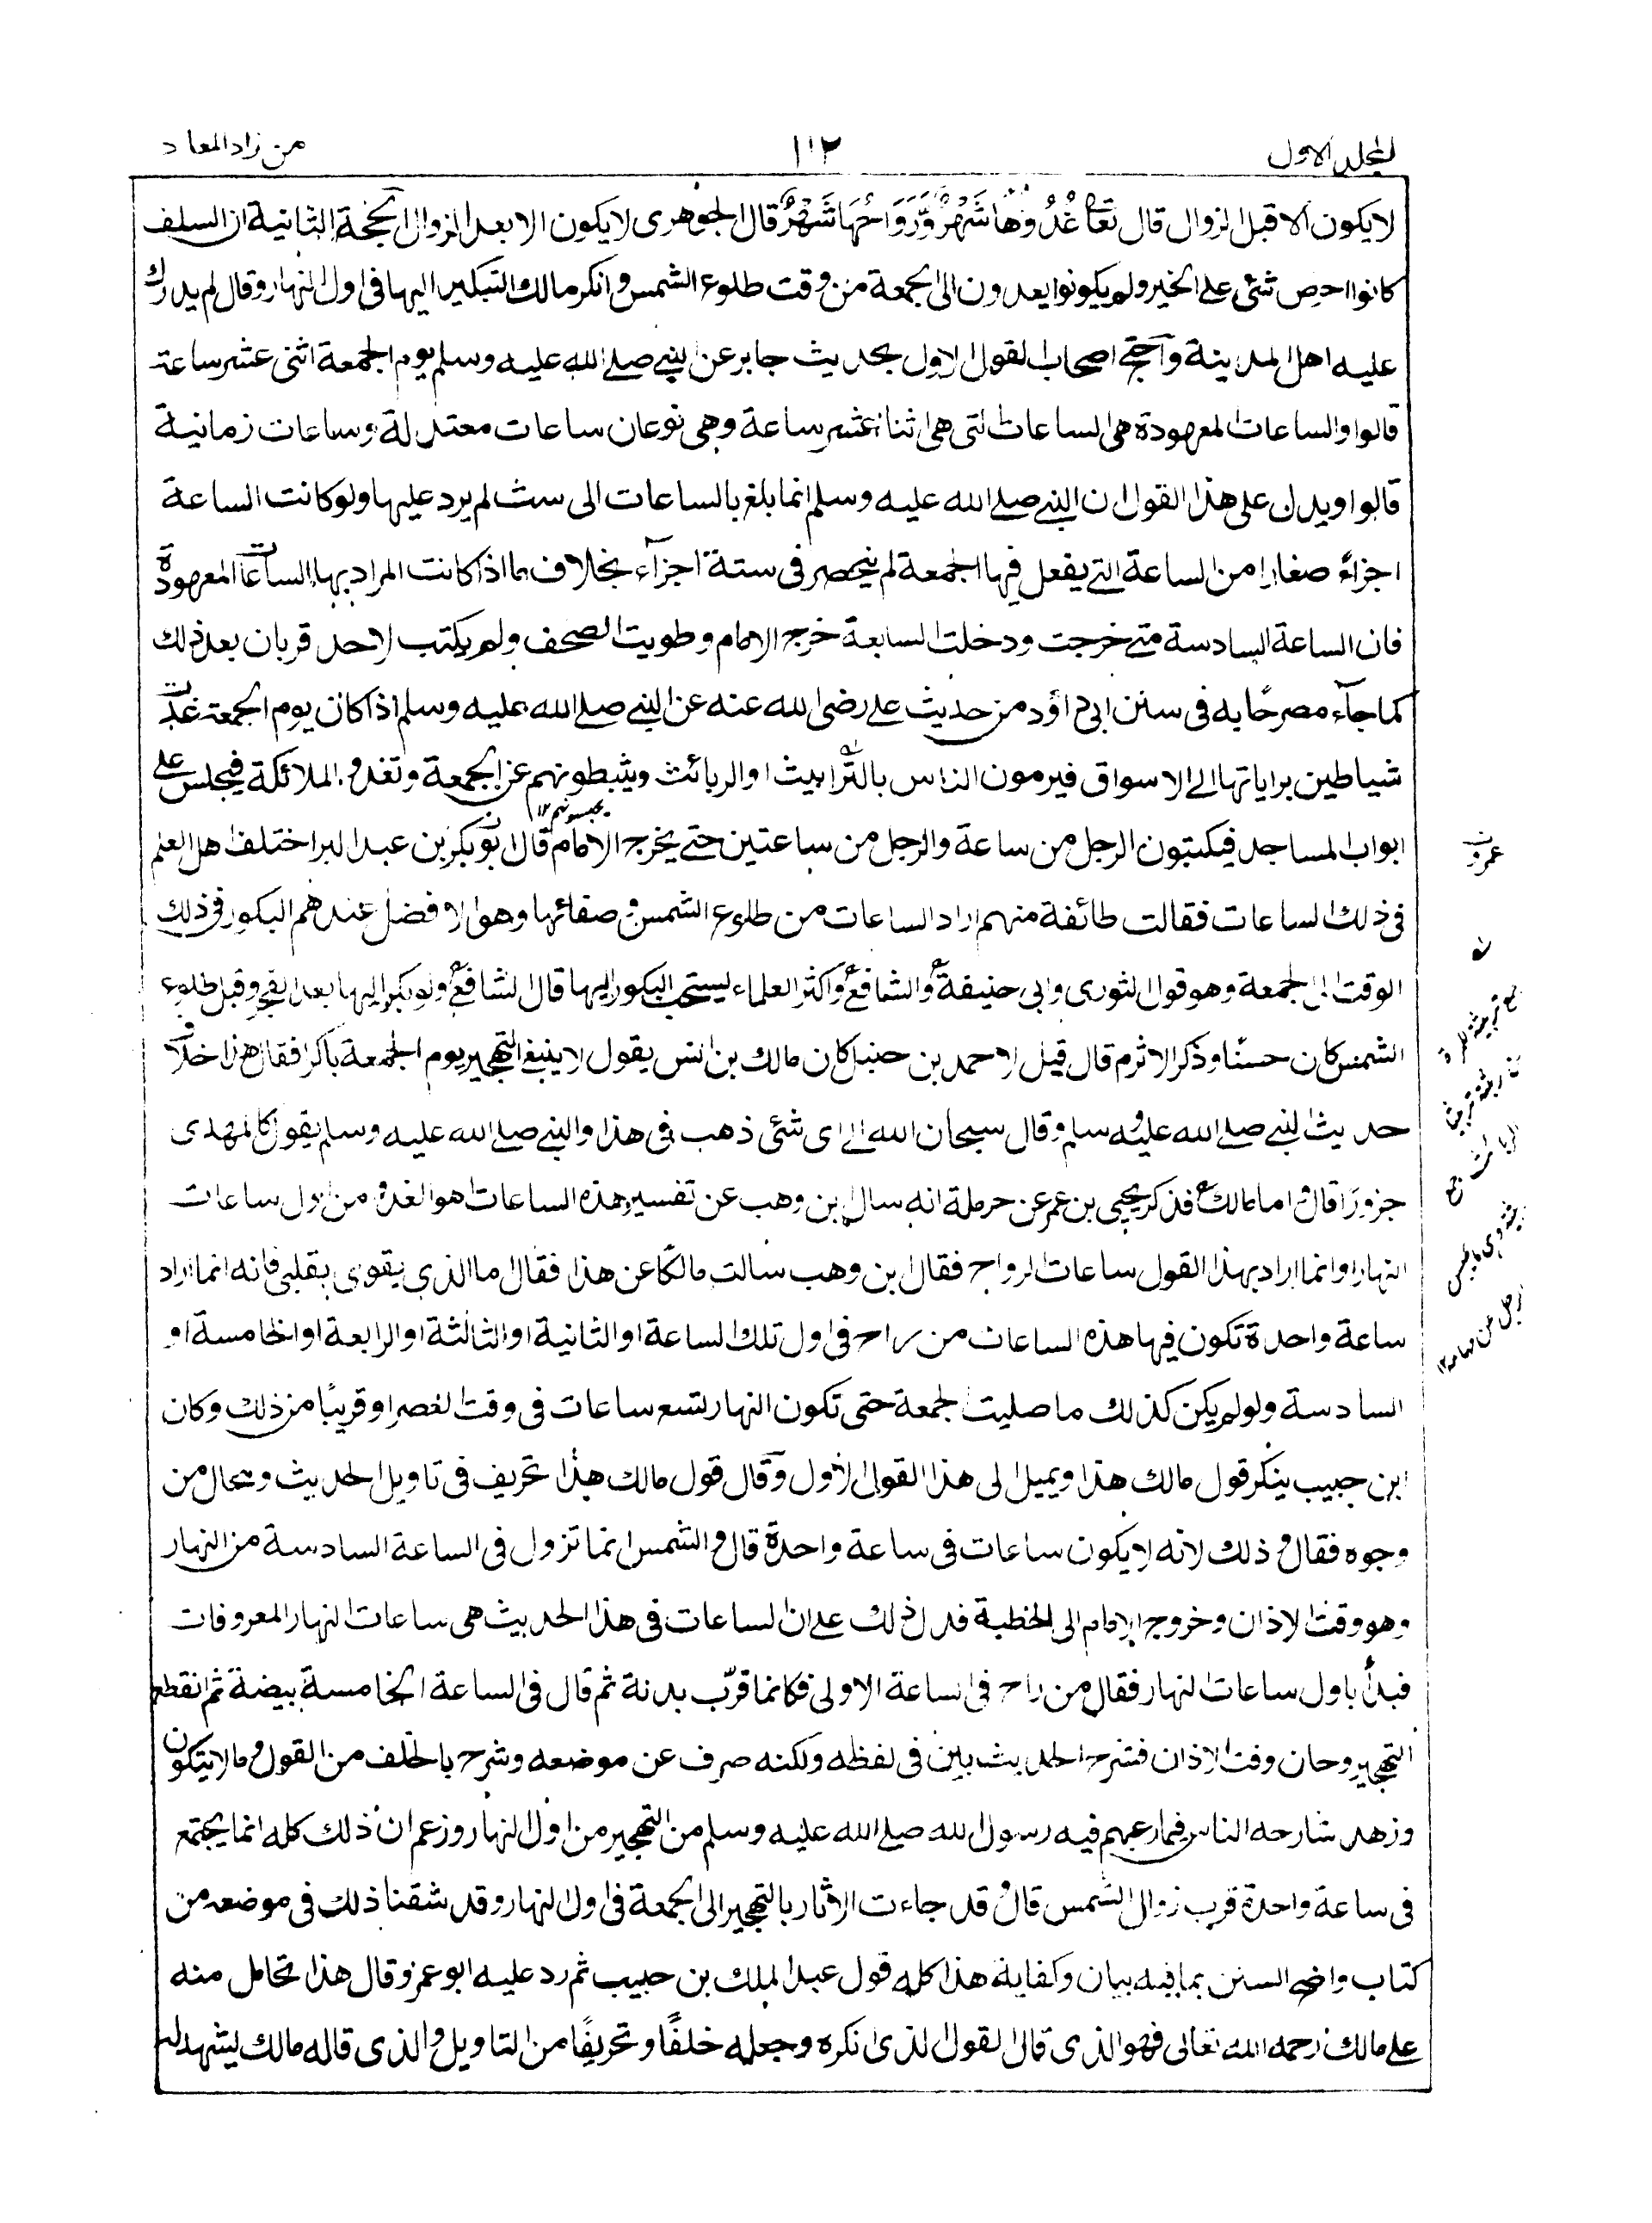 المجلد الاول
١١٢
من زاد المعاد
لا يكون الا قبل الزوال قال تعا غُدُوُّهَا شَهْرٌ وَّرَوَاحُهَا شَهْرٌ قال الجوهرى لا يكون الا بعد الزوال الحجة الثانية ان السلف
كانوا احرص شئى على الخير ولم يكونوا يعدون الى الجمعة من وقت طلوع الشمس وانكر مالك التبكير اليها فى اول النهار وقال لم يدرك
عليه اهل المدينة واحتج اصحاب القول الاول بحديث جابر عن النبى صلى الله عليه وسلم يوم الجمعة اثنى عشر ساعة
قالوا والساعات المعهودة هى الساعات التى هى اثنا عشر ساعة وهى نوعان ساعات معتدلة وساعات زمانية
قالوا ويدل على هذا القول ان النبى صلى الله عليه وسلم انما بلغ بالساعات الى ست لم يرد عليها ولو كانت الساعة
اجزاءً صغارا من الساعة التى يفعل فيها الجمعة لم ينحصر فى ستة اجزآء بخلاف ما اذا كانت المراد بها الساعات المعهودة
فان الساعة السادسة متى خرجت ودخلت السابعة خرج الامام وطويت الصحف ولم يكتب لاحد قربان بعد ذلك
كما جآء مصرحًا به فى سنن ابى داؤد من حديث على رضى الله عنه عن النبى صلى الله عليه وسلم اذا كان يوم الجمعة غدت
شياطين براياتها الى الاسواق فيرمون الناس بالترابيث او الربائث ويثبطونهم عن الجمعة وتغدو الملائكة فيجلس على
يحبسونهم ١٢
ابواب المساجد فيكتبون الرجل من ساعة والرجل من ساعتين حتى يخرج الامام قال ابو بكر بن عبد البر اختلف اهل العلم
فى ذلك الساعات فقالت طائفة منهم اراد الساعات من طلوع الشمس وصفائها وهو الافضل عندهم البكور فى ذلك
الوقت الى الجمعة وهو قول الثورى وابى حنيفة والشافع واكثر العلماء ليستحب البكور اليها قال الشافع ولو بكر اليها بعد الفجر وقبل طلوع
الشمس كان حسنًا وذكر الاثرم قال قيل لاحمد بن حنبل كان مالك بن انس يقول لا ينبغى التهجير يوم الجمعة باكرا فقال هذا خلاف
حديث النبى صلى الله عليه وسلم وقال سبحان الله الى اى شئى ذهب فى هذا والنبى صلى الله عليه وسلم يقول كالمهدى
جزورًا قال واما مالك فذكر يحيى بن عمر عن حرملة انه سال بن وهب عن تفسير هذه الساعات اهو الغدو من اول ساعات
النهار او انما اراد بهذا القول ساعات الرواح فقال ابن وهب سالت مالكا عن هذا فقال ما الذى يقوى بقلبى فانه انما اراد
ساعة واحدة تكون فيها هذه الساعات من راح فى اول تلك الساعة او الثانية او الثالثة او الرابعة او الخامسة او
السادسة ولو لم يكن كذلك ما صليت الجمعة حتى تكون النهار تسع ساعات فى وقت العصر او قريبًا من ذلك وكان
ابن حبيب ينكر قول مالك هذا ويميل الى هذا القول الاول وقال قول مالك هذا تحريف فى تاويل الحديث ومحال من
وجوه فقال وذلك لانه لا يكون ساعات فى ساعة واحدة قال والشمس انما تزول فى الساعة السادسة من النهار
وهو وقت الاذان وخروج الامام الى الخطبة فدل ذلك على ان الساعات فى هذا الحديث هى ساعات النهار المعروفات
فبدأ باول ساعات النهار فقال من راح فى الساعة الاولى فكانما قرّب بدنة ثم قال فى الساعة الخامسة بيضة ثم انقطع
التهجير وحان وقت الاذان فشرح الحديث بين فى لفظه ولكنه صرف عن موضعه وشرح بالخلف من القول وما لا يتكون
وزهد شارحه الناس فيما رغبهم فيه رسول الله صلى الله عليه وسلم من التهجير من اول النهار وزعم ان ذلك كله انما يجتمع
فى ساعة واحدة قرب زوال الشمس قال وقد جاءت الاثار بالتهجير الى الجمعة فى اول النهار وقد شقنا ذلك فى موضعه من
كتاب واضح السنن بما فيه بيان وكفاية هذا كله قول عبد الملك بن حبيب ثم رد عليه ابو عمر وقال هذا تحامل منه
على مالك رحمه الله تعالى فهو الذى قال القول الذى انكره وجعله خلفًا وتحريفًا من التاويل والذى قاله مالك ليشهد له